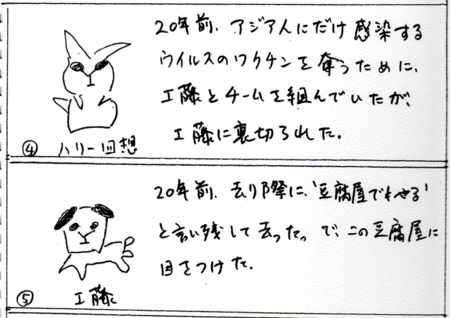 20年前、アジア人にだけ感染する
ウイルスのワクチンを奪うために、
工藤とチームを組んでいたが、
工藤に裏切られた。
④ ハリー回想
20年前、去り際に、'豆腐屋でもやる'
と言い残して去った。で、この豆腐屋に
目をつけた。
⑤ 工藤